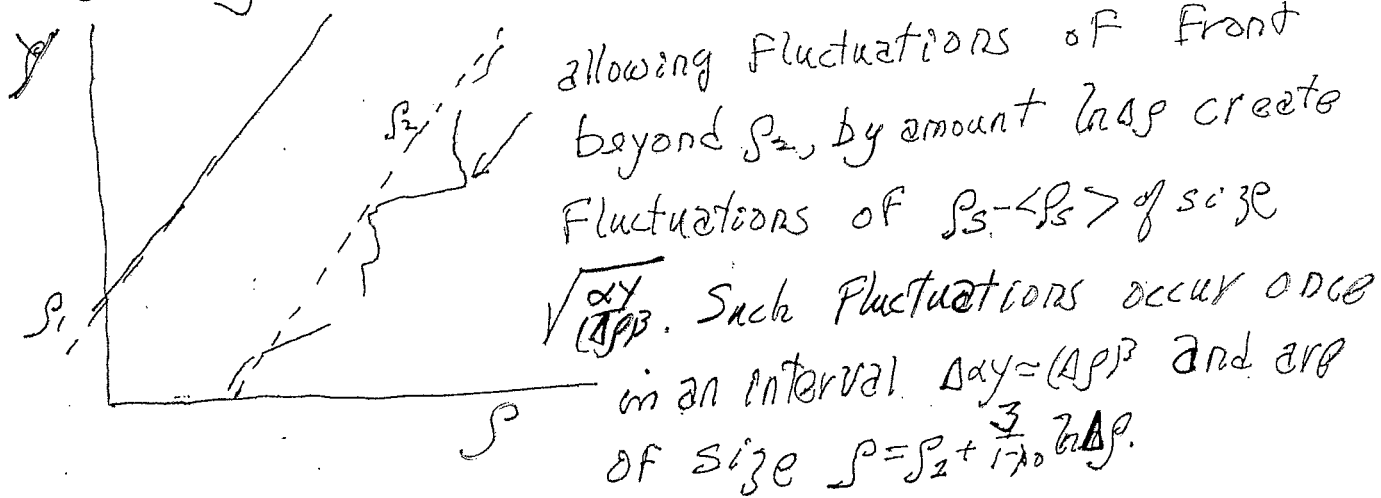 y
allowing Fluctuations of Front
ρ₂
beyond ρ₂, by amount lnΔρ create
Fluctuations of ρₛ-<ρₛ> of size
ρ₁
√(αY/(Δρ)³). Such Fluctuations occur once
in an interval ΔαY=(Δρ)³ and are
ρ
of size ρ=ρ₂+ 3/(1-λ₀) lnΔρ.